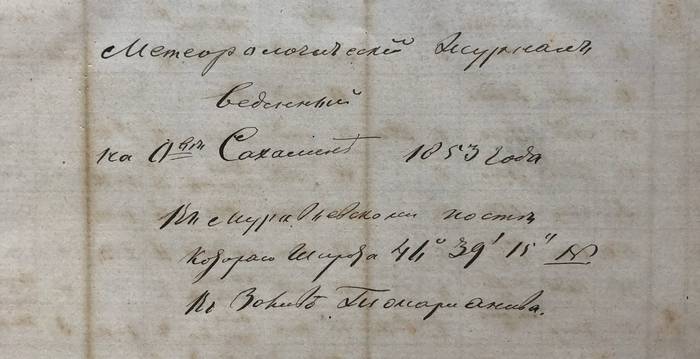 Метеорологическій Журналъ
веденный
на О<sup>вѣ</sup> Сахалинѣ 1853 года
Въ Муравьевскомъ посту
Котораго Широта 46° 39' 15" N
Въ Заливѣ Томарианива.